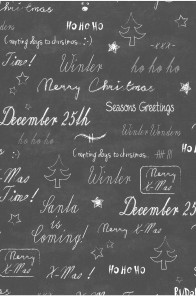 Christmas
HO HO HO
Counting days to christmas.. :-)
-xxx-
Time!
Winter
ho ho ho
Merry Christmas
Seasons Greetings
December 25th
Winter Wonders
ho ho ho
Counting days to christmas..
X-Mas
Time!
Winter
Merry
X-Mas
Santa
is
Coming!
December
Merry
X-Mas
X-Mas
X-Mas !
HO HO HO